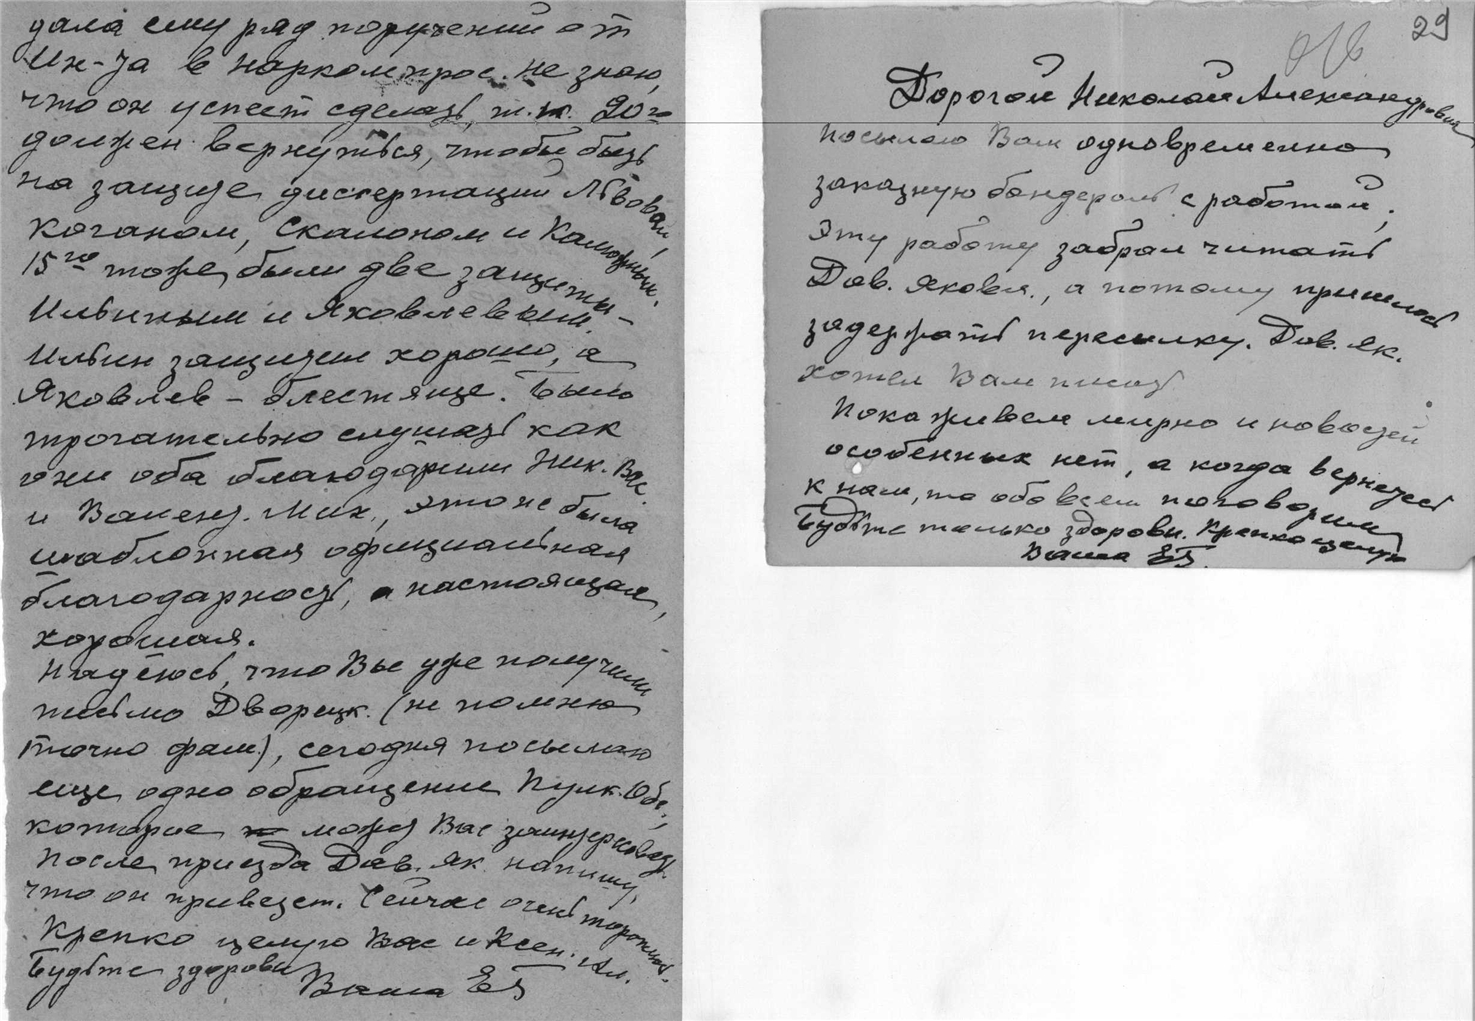 дала ему ряд поручений от
Ин-та в Наркомпрос. Не знаю,
что он успеет сделать, т.к. 20го
должен вернуться, чтобы быть
на защите диссертаций Львовой,
Коганом, Скалоном и
15го тоже были две защиты –
Ильиным и Яковлевым.
Ильин защищал хорошо, а
Яковлев – блестяще. Было
трогательно слушать как
они оба благодарили Ник. Вас.
и Валент. Мих., это не была
шаблонная официальная
благодарность, а настоящая,
хорошая.
Надеюсь, что Вы уже получили
письмо Дворецк. (не помню
точно фам.), сегодня посылаю
еще одно обращение Пулк. Обс.,
которое может Вас заинтересовать.
После приезда Дав. Як. напишу,
что он привезет. Сейчас очень тороплюсь.
Крепко целую Вас и Ксен. Ал.
Будьте здоровы
Ваша ЕБ
29
Дорогой Николай Александрович
посылаю Вам одновременно
заказную бандероль с работой;
эту работу забрал читать
Дав. Яковл., а потому пришлось
задержать пересылку. Дав. Як.
хотел Вам писать
Пока живем мирно и новостей
особенных нет, а когда вернетесь
к нам, то обо всем поговорим
Будьте только здоровы. Крепко целую
Ваша ЕБ.